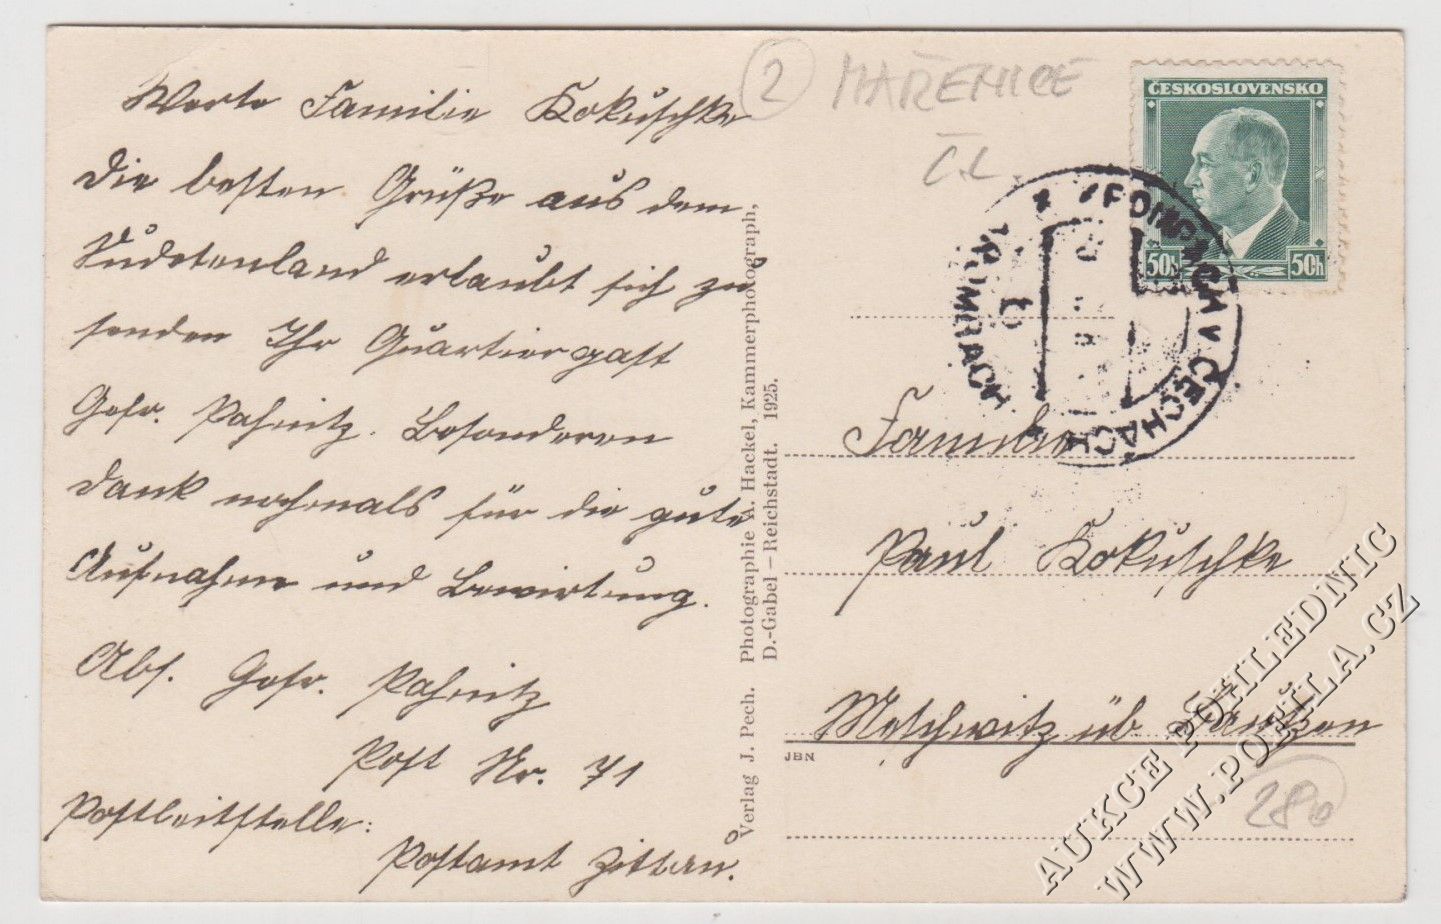 Werte Familie Kokuschke
die besten Grüße aus dem
Sudetenland erlaubt sich zu
senden Ihr Quartiergast
Gefr. Paßnitz. Besonderen
Dank nochmals für die gute
Aufnahme und Bewirtung.
Abs. Gefr. Paßnitz
Post Nr. 71
Postleitstelle:
Postamt Zittau.
Verlag J. Pech. Photographie A. Hackel, Kammerphotograph,
D.-Gabel – Reichstadt. 1925.
2 MAŘENICE
Č.L.
ČESKOSLOVENSKO
50h 50h
KROMBACH V ČECHÁCH
KROMBACH
Familie
Paul Kokuschke
Meschwitz üb Bautzen
JBN
280
AUKCE POHLEDNIC
WWW.POFILA.CZ